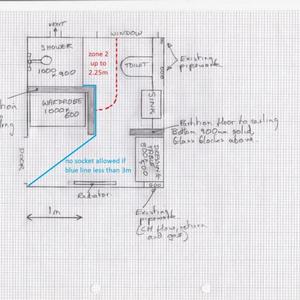 VENT
WINDOW
SHOWER
1000
x 900
zone 2
up to
2.25m
TOILET
Existing
pipework
SINK
WARDROBE
1000 x
600
Partition floor to ceiling
Bottom 900mm solid,
Glass blocks above
DOOR
no socket allowed if
blue line less than 3m
Radiator
1m
Existing
pipework
(CH flow, return
and gas)